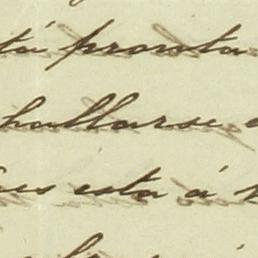 tá pronta
hallarse
es esta á